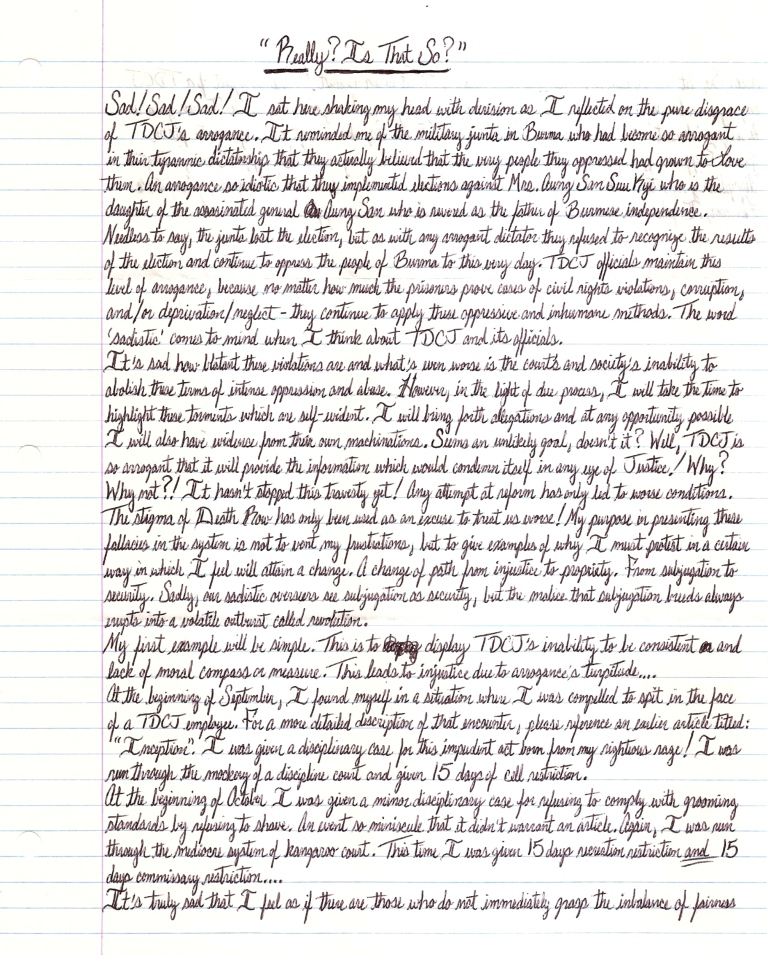 "Really? Is That So?"
Sad! Sad! Sad! I sat here shaking my head with derision as I reflected on the pure disgrace
of TDCJ's arrogance. It reminded me of the military junta in Burma who had become so arrogant
in their tyrannic dictatorship that they actually believed that the very people they oppressed had grown to love
them. An arrogance so idiotic that they implemented elections against Mrs. Aung San Suu Kyi who is the
daughter of the assassinated general Aung San who is revered as the father of Burmese independence.
Needless to say, the junta lost the election, but as with any arrogant dictator they refused to recognize the results
of the election and continue to oppress the people of Burma to this very day. TDCJ officials maintain this
level of arrogance, because no matter how much the prisoners prove cases of civil rights violations, corruption,
and/or deprivation/neglect - they continue to apply these oppressive and inhumane methods. The word
'sadistic' comes to mind when I think about TDCJ and its officials.
It's sad how blatant these violations are and what's even worse is the court's and society's inability to
abolish these terms of intense oppression and abuse. However, in the light of due process, I will take the time to
highlight these torments which are self-evident. I will bring forth allegations and at any opportunity possible
I will also have evidence from their own machinations. Seems an unlikely goal, doesn't it? Well, TDCJ is
so arrogant that it will provide the information which would condemn itself in any eye of Justice! Why?
Why not?! It hasn't stopped this travesty yet! Any attempt at reform has only led to worse conditions.
The stigma of Death Row has only been used as an excuse to treat us worse! My purpose in presenting these
fallacies in the system is not to vent my frustrations, but to give examples of why I must protest in a certain
way in which I feel will attain a change. A change of path from injustice to propriety. From subjugation to
security. Sadly, our sadistic overseers see subjugation as security, but the malice that subjugation breeds always
erupts into a volatile outburst called revolution.
My first example will be simple. This is to display TDCJ's inability to be consistent and
lack of moral compass or measure. This leads to injustice due to arrogance's turpitude....
At the beginning of September, I found myself in a situation where I was compelled to spit in the face
of a TDCJ employee. For a more detailed description of that encounter, please reference an earlier article titled:
"Inception". I was given a disciplinary case for this impudent act born from my righteous rage! I was
run through the mockery of a discipline court and given 15 days of cell restriction.
At the beginning of October I was given a minor disciplinary case for refusing to comply with grooming
standards by refusing to shave. An event so miniscule that it didn't warrant an article. Again, I was run
through the mediocre system of kangaroo court. This time I was given 15 days recreation restriction and 15
days commissary restriction....
It's truly sad that I feel as if there are those who do not immediately grasp the inbalance of fairness